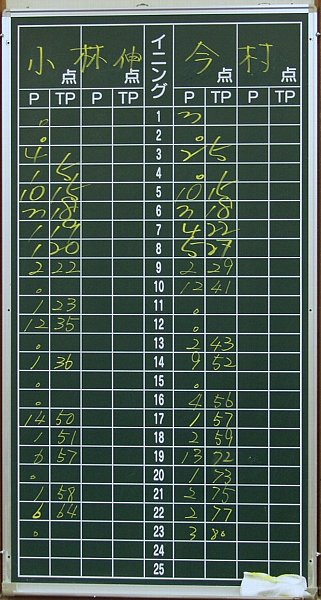 小林伸 イニング 今村
点 点 点 点
P TP P TP P TP P TP
0 1 3
0 2 0
4 3 2 5
1 5 4 0
10 15 5 10 15
3 18 6 3 18
1 19 7 4 22
1 20 8 5 27
2 22 9 2 29
0 10 12 41
1 23 11 0
12 35 12 0
0 13 2 43
1 36 14 9 52
0 15 0
0 16 4 56
14 50 17 1 57
1 51 18 2 59
6 57 19 13 72
0 20 1 73
1 58 21 2 75
6 64 22 2 77
0 23 3 80
24
25